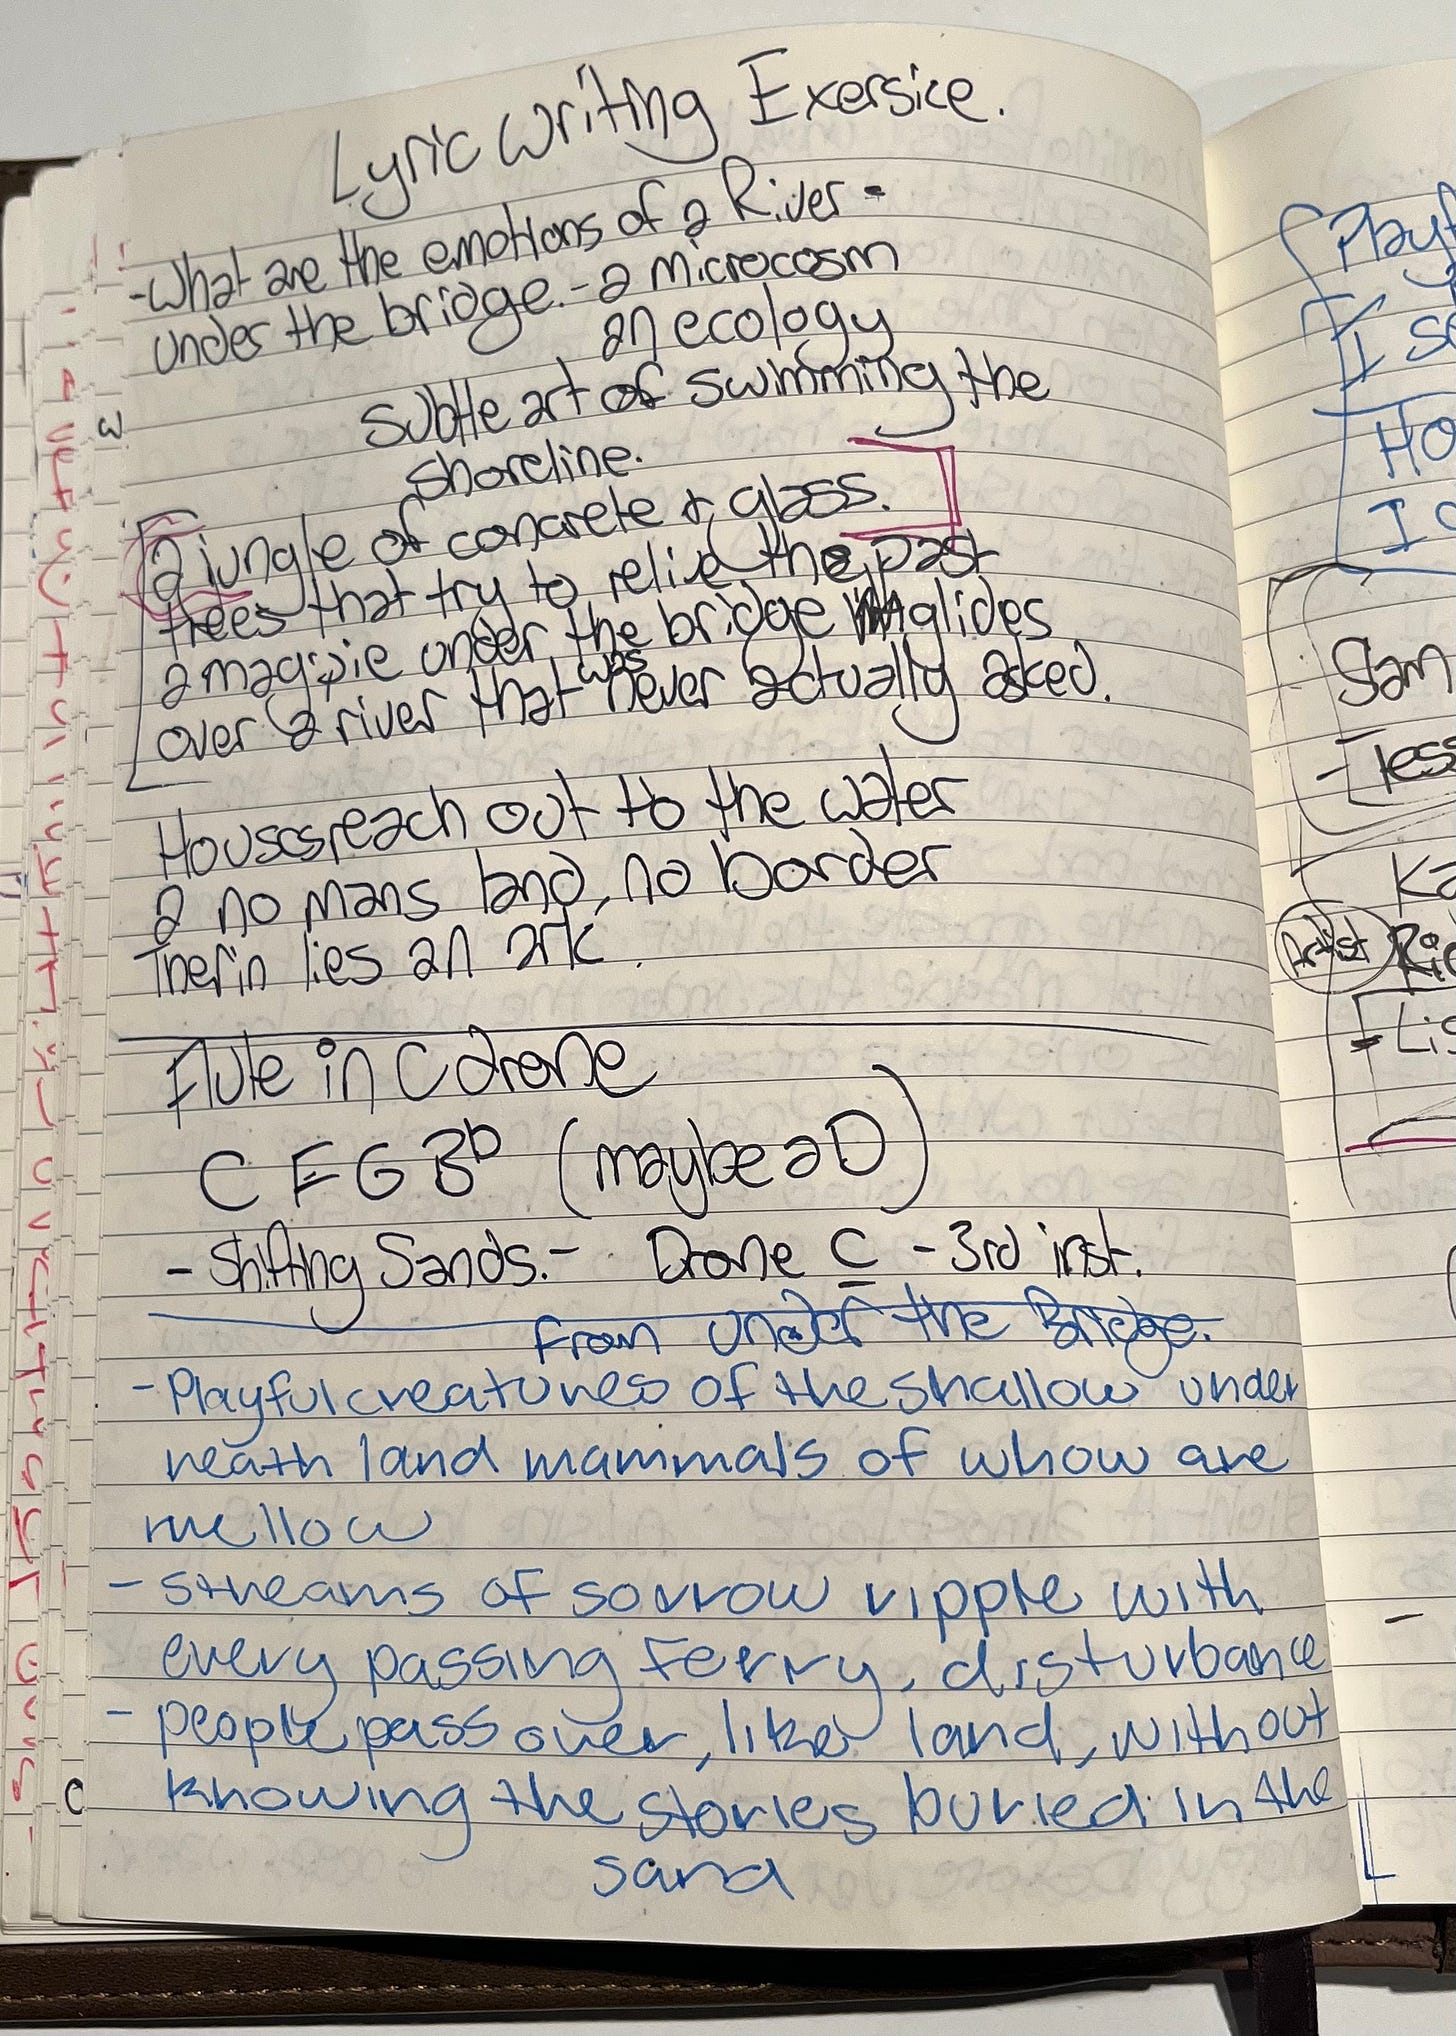 Lyric Writing Exersice.
-What are the emotions of a River -
under the bridge. - a microcosm
an ecology
subtle art of swimming the
shoreline.
a jungle of concrete & glass.
trees that try to relive the past
a magpie under the bridge glides
over a river that was never actually asked.
Houses reach out to the water
a no mans land, no border
Therin lies an ark.
Flute in C drone
C F G Bb (maybe a D)
- Shifting Sands. - Drone C - 3rd inst.
From Under the Bridge.
- Playful creatures of the shallow under
neath land mammals of whow are
mellow
- streams of sorrow ripple with
every passing ferry, disturbance
- people pass over, like land, without
knowing the stories buried in the
sand
Playf
I s
Ho
I
Sam
- less
Ka
Artist Ri
- Lis